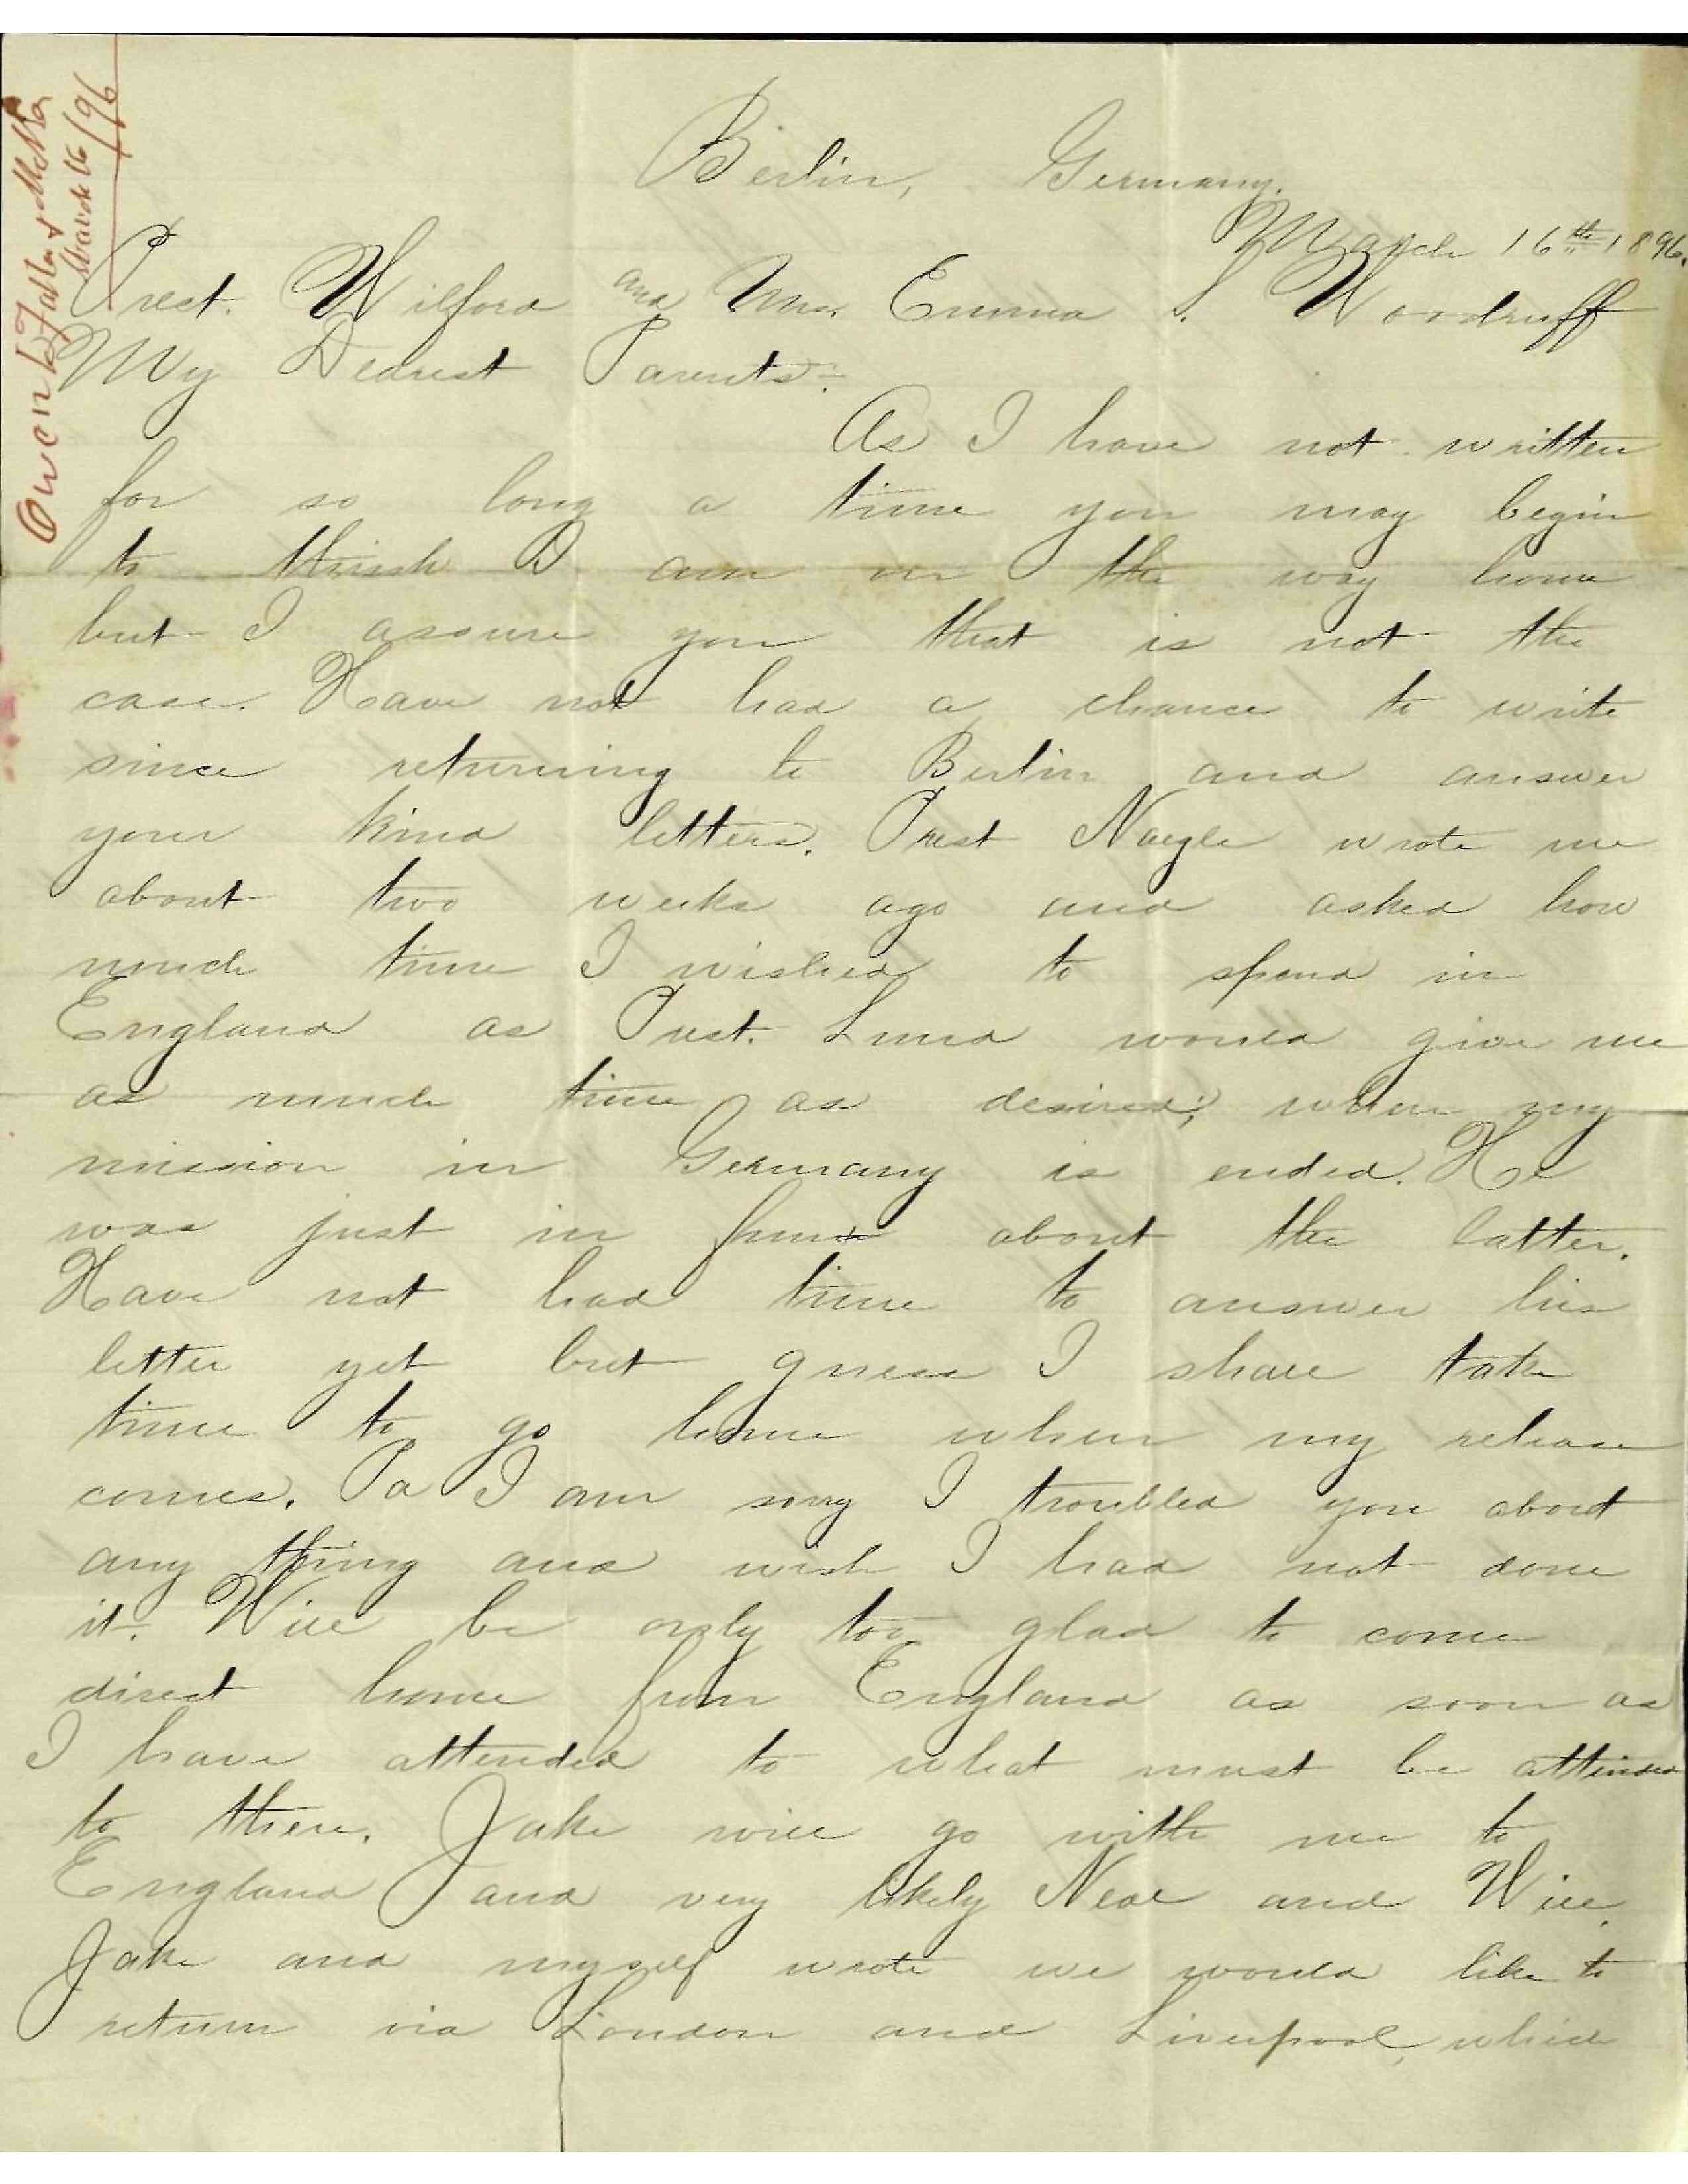 Owen to Father & Mother
March 16/96
Berlin, Germany.
March 16th 1896.
Prest. Wilford and Mrs. Emma S. Woodruff
My Dearest Parents:
As I have not written
for so long a time you may begin
to think I am on the way home
but I assure you that is not the
case. Have not had a chance to write
since returning to Berlin and answer
your kind letters. Prest Naegle wrote me
about two weeks ago and asked how
much time I wished to spend in
England as Prest. Lund would give me
as much time as desired; when my
mission in Germany is ended. He
was just in fun about the latter.
Have not had time to answer his
letter yet but guess I shall take
time to go home when my release
comes. Pa I am sorry I troubled you about
any thing and wish I had not done
it. Will be only too glad to come
direct home from England as soon as
I have attended to what must be attended
to there. Jake will go with me to
England and very likely Neal and Will.
Jake and myself wrote we would like to
return via London and Liverpool, which